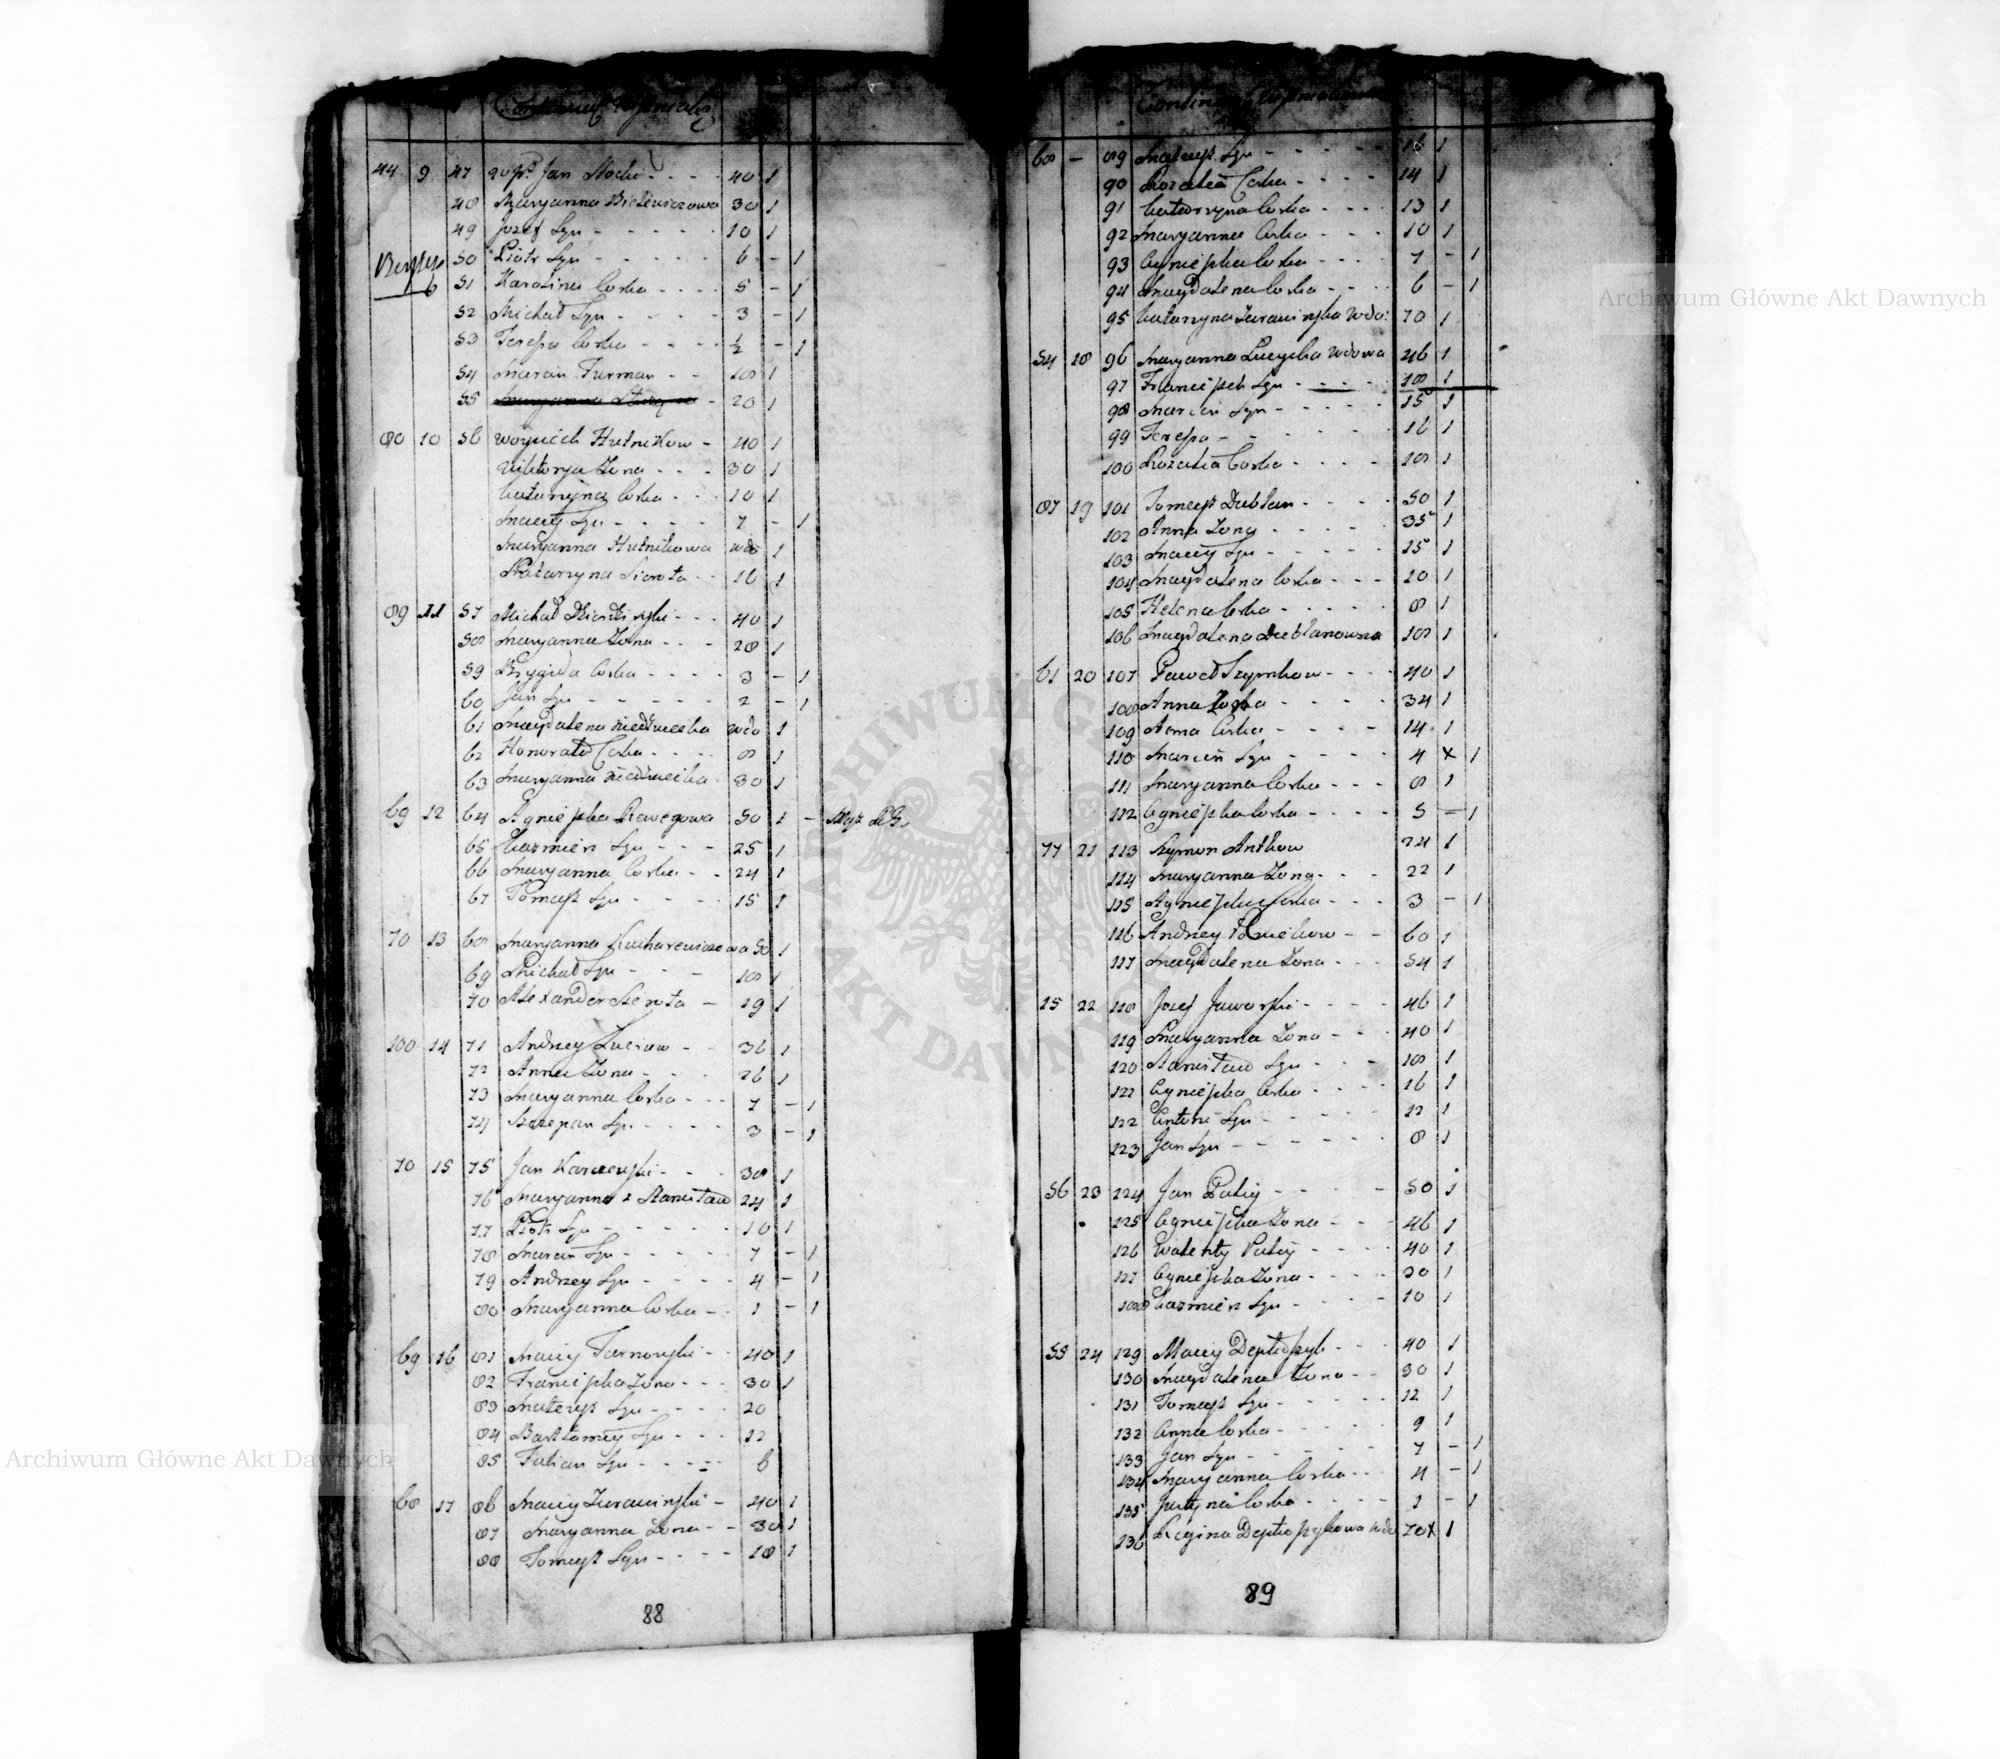 44 9 47 Jan 40 1
48 Maryanna 30 1
49 Jozef Syn - - - - - 10 1
50 Piotr Syn - - - - - 6 - 1
6 51 Karolina Corka - - - - 5 - 1
52 Michał Syn - - - - 3 - 1
53 Teressa Corka - - - - ½ - 1
54 Marcin Furman - - 18 1
55 Maryanna - 20 1
80 10 56 Woyciech Hutnikow - 40 1
Wiktorya Zona - - - 30 1
Katarzyna Corka - - - 10 1
Maciey Syn - - - - - 7 - 1
Maryanna Hutnikowa wdo 1
Katarzyna Sierota - - 16 1
89 11 57 Michał - - - 40 1
58 Maryanna Zona - - - 28 1
59 Brygida Corka - - - - 3 - 1
60 Jan Syn - - - - - 2 - 1
61 Magdalena Niedzwiecka wdo 1
62 Honorata Corka - - - - 8 1
63 Maryanna Niedzwiecka - 30 1
69 12 64 Agnieszka 50 1 -
65 Kazmierz Syn - - - 25 1
66 Maryanna Corka - - 24 1
67 Tomasz Syn - - - - 15 1
70 13 68 Maryanna Kucharewiczowa 50 1
69 Michał Syn - - - 18 1
70 Alexander Sierota - 19 1
100 14 71 Andrzey - - 36 1
72 Anna Zona - - - 26 1
73 Maryanna Corka - - - 7 - 1
74 Szczepan Syn - - - - 3 - 1
70 15 75 Jan - - - 38 1
76 Maryanna z Stanisław 24 1
77 Piotr Syn - - - - - 10 1
78 Marcin Syn - - - - - 7 - 1
79 Andrzey Syn - - - - 4 - 1
80 Maryanna Corka - - 1 - 1
69 16 81 Maciey Tarnowski - - 40 1
82 Franciszka Zona - - - 30 1
83 Mateusz Syn - - - - 20
84 Bartłomiey Syn - - - 12
85 Julian Syn - - - - - 6
68 17 86 Maciey Zurawinski - 40 1
87 Maryanna Zona - - 30 1
88 Tomasz Syn - - - - 18 1
88
68 - 89 Mateusz Syn - - - - - 16 1
90 Rozalia Corka - - - - 14 1
91 Katarzyna Corka - - - 13 1
92 Maryanna Corka - - - 10 1
93 Agnieszka Corka - - - - 7 - 1
94 Magdalena Corka - - - 6 - 1
95 Katarzyna Zurawinska Wdo: 70 1
54 18 96 Maryanna Wdowa 46 1
97 Franciszek Syn - - - - 18 1
98 Marcin Syn - - - - - 15 1
99 Teressa - - - - - - 16 1
100 Rozalia Corka - - - - 18 1
87 19 101 Tomasz Dublan - - - - 50 1
102 Anna Zona - - - - 35 1
103 Maciey Syn - - - - - 15 1
104 Magdalena Corka - - - 10 1
105 Helena Corka - - - - - 8 1
106 Magdalena Dublanowna 18 1
61 20 107 Paweł Szymkow - - - - 40 1
108 Anna - - - - 34 1
109 Anna Corka - - - - 14 1
110 Marcin Syn - - - - - 4 x 1
111 Maryanna Corka - - - 8 1
112 Agnieszka Corka - - - - 5 - 1
77 21 113 Szymon Antkow 24 1
114 Maryanna Zona - - - 22 1
115 Agnieszka Corka - - - 3 - 1
116 Andrzey - - 60 1
117 Magdalena Zona - - - 54 1
15 22 118 Jozef Jaworski - - - - 46 1
119 Maryanna Zona - - - 40 1
120 Stanisław Syn - - - 18 1
121 Agnieszka Corka - - - - 16 1
122 Antoni Syn - - - - - 12 1
123 Jan Syn - - - - - - 8 1
56 23 124 Jan - - - - - 50 1
125 Agnieszka Zona - - - 46 1
126 Walenty - - - - 40 1
127 Agnieszka Zona - - - - 30 1
128 Kazmierz Syn - - - - 10 1
55 24 129 Maciey - - - 40 1
130 Magdalena Zona - - 30 1
131 Tomasz Syn - - - - - 12 1
132 Anna Corka - - - - - 9 1
133 Jan Syn - - - - - - 7 - 1
134 Maryanna Corka - - - 4 - 1
135 Justyna Corka - - - - - 1 - 1
136 Regina wdo 70 x 1
89
Archiwum Główne Akt Dawnych
Archiwum Główne Akt Dawnych